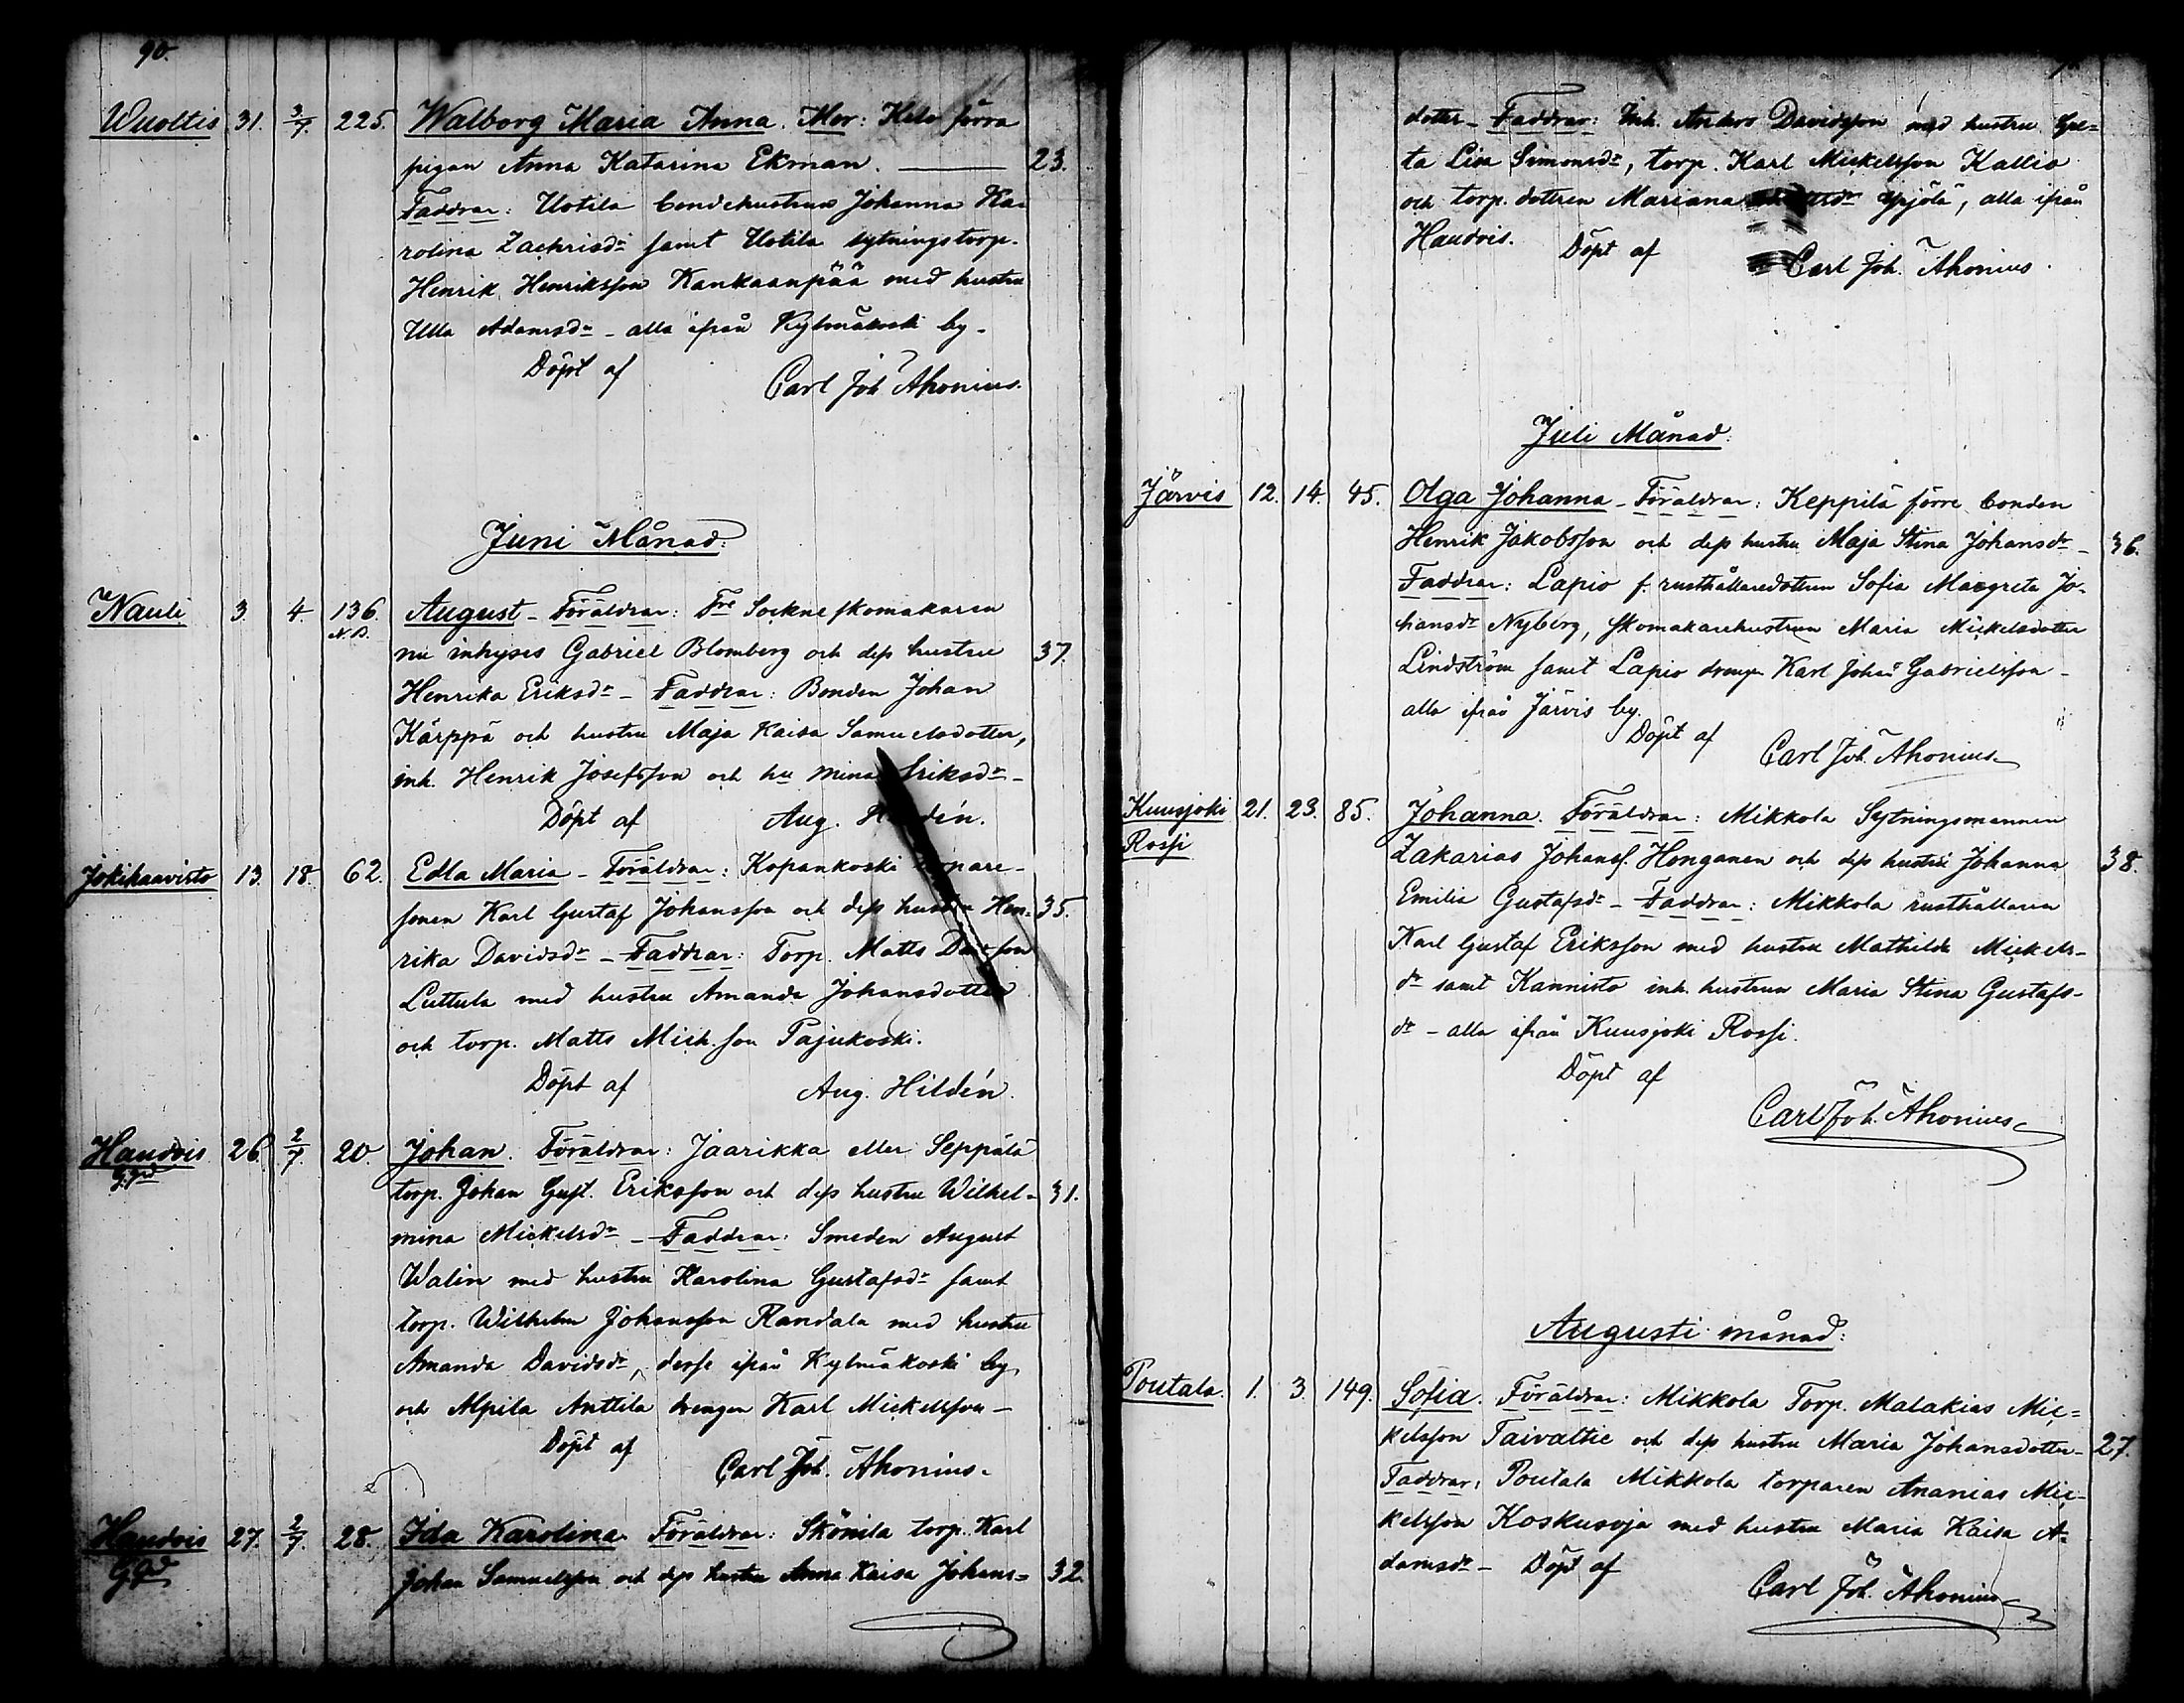 90.
Wuoltis 31. 3/7. 225. Walborg Maria Anna. Mor: Kelo förra
pigan Anna Katarina Ekman. 23.
Faddrar: Uotila bondehustrun Johanna Ka-
rolina Zachrisdr samt Uotila sytningstorp.
Henrik Henriksson Kankaanpää med hustru
Ulla Adamsdr - alla ifrån Kylmäkoski by.
Döpt af Carl Joh. Ahonius.
Juni Månad:
Nauli 3. 4. 136. August - Föräldrar: Fre Sockneskomakaren
N.B.
nu inhyses Gabriel Blomberg och dess hustru 37.
Henrika Eriksdr - Faddrar: Bonden Johan
Kärppä och hustru Maja Kaisa Samuelsdotter,
inh. Henrik Josefsson och hu Mina Eriksdr -
Döpt af Aug. Hildén.
Jokihaavisto 13. 18. 62. Edla Maria - Föräldrar: Kopankoski torpare-
sonen Karl Gustaf Johansson och dess hustru Hen- 35.
rika Davidsdr - Faddrar: Torp. Matts Davidsson
Luttula med hustru Amanda Johansdotter
och torp. Matts Mich.son Pajukoski.
Döpt af Aug. Hildén.
Haudois 26. 2/7. 20. Johan. Föräldrar: Jaarikka eller Seppälä
torp. Johan Gust. Eriksson och dess hustru Wilhel- 31.
mina Mickelsdr - Faddrar: Smeden August
Walin med hustru Karolina Gustafsdr samt
torp. Wilhelm Johansson Randala med hustru
Amanda Davidsdr, desse ifrån Kylmäkoski by,
och Alpila Anttila drengen Karl Mickelsson -
Döpt af Carl Joh. Ahonius.
Haudois 27. 2/7. 28. Ida Karolina. Föräldrar: Skönila torp. Karl
Johan Samuelsson och dess hustru Anna Kaisa Johans- 32.
dotter - Faddrar: Inh. Anders Davidsson med hustru Gre-
ta Lisa Simonsdr, torp. Karl Mickelsson Kallio
och torp. dottren Mariana alla ifrån
Haudois. Döpt af Carl Joh. Ahonius.
Juli Månad:
Järvis 12. 14. 45. Olga Johanna - Föräldrar: Keppilä förre bonden
Henrik Jakobsson och dess hustru Maja Stina Johansdr - 36.
Faddrar: Lapio f. rusthållaredottren Sofia Margreta Jo-
hansdr Nyberg, skomakarehustrun Maria Mickelsdotter
Lindström samt Lapio drengen Karl Johan Gabrielsson -
alla ifrån Järvis by.
Döpt af Carl Joh. Ahonius.
Kuusjoki 21. 23. 85. Johanna. Föräldrar: Mikkola Sytningsmannen
Rossi
Zakarias Johans. Honganen och dess hustru Johanna 38.
Emilia Gustafsdr - Faddrar: Mikkola rusthållaren
Karl Gustaf Eriksson med hustru Mathilda Mickels-
dr samt Kannisto inh. hustrun Maria Stina Gustafs-
dr - alla ifrån Kuusjoki Rossi.
Döpt af
Carl Joh. Ahonius.
Augusti månad:
Poutala. 1. 3. 149. Sofia. Föräldrar: Mikkola Torp. Malakias Mic-
kelsson Taivattie och dess hustru Maria Johansdotter - 27.
Faddrar: Poutala Mikkola torparen Ananias Mic-
kelsson Koskusoja med hustru Maria Kaisa A-
damsdr - Döpt af
Carl Joh. Ahonius.